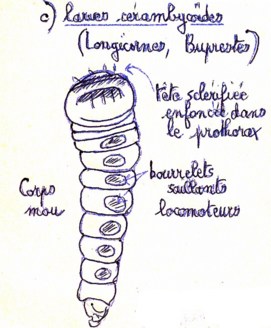 c) larves cérambycoïdes
(Longicornes, Buprestes)
tête sclérifiée
enfoncée dans
le prothorax
bourrelets
saillants
locomoteurs
Corps
mou